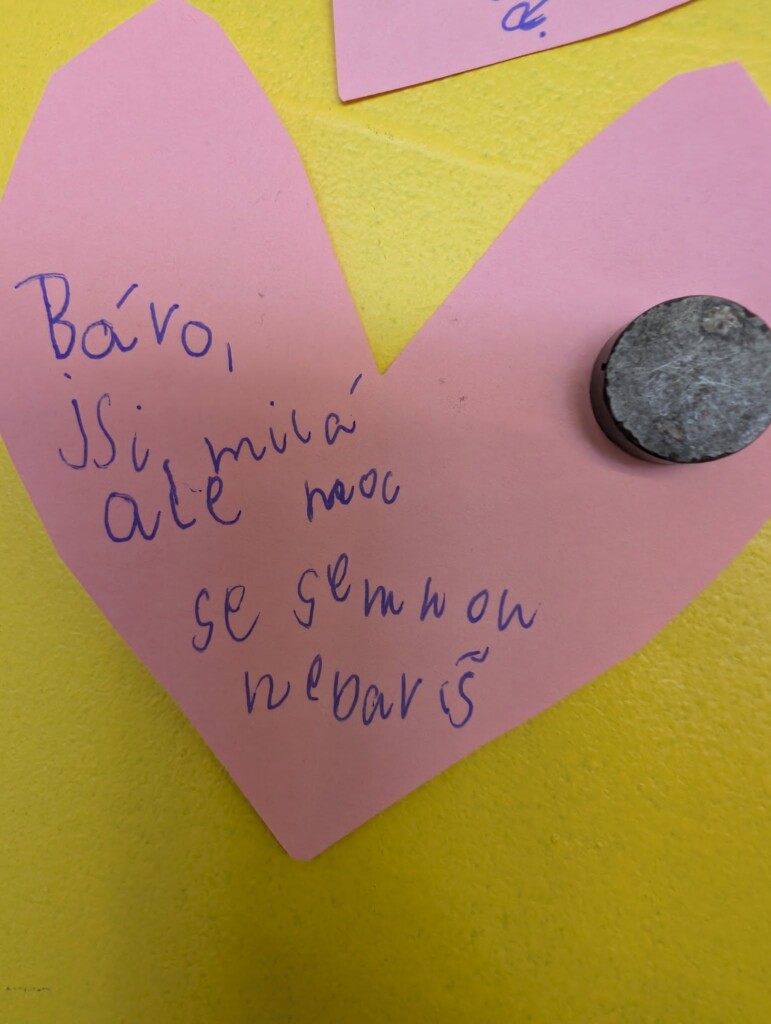 Báro,
jsi milá
ale moc
se semnou
nebavíš